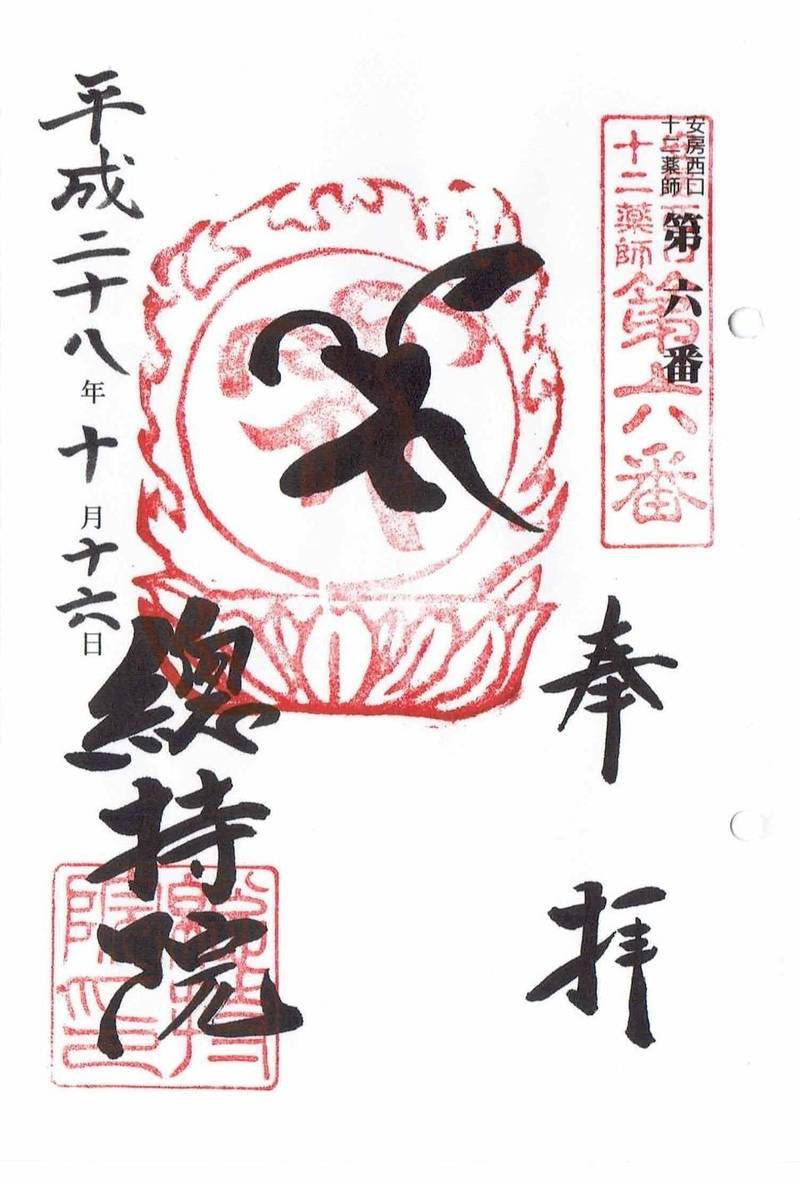 安房西口
十二薬師
第六番
十二薬師
第六番
奉拝
平成二十八年十月十六日
總持院